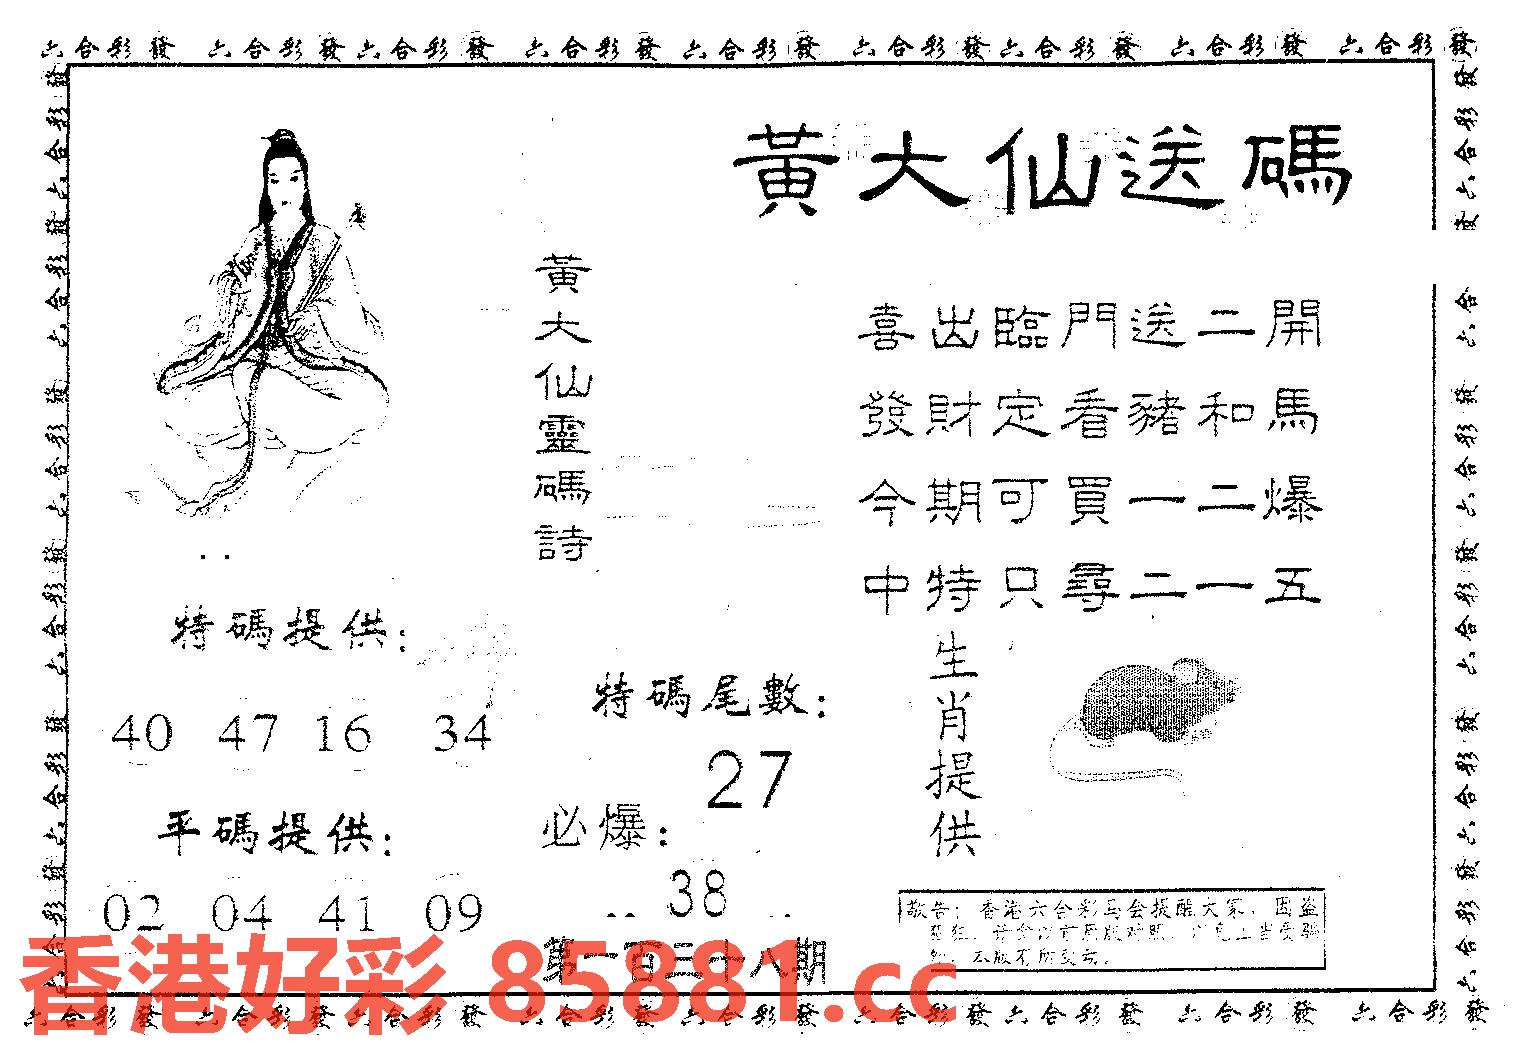 六合彩發 六合彩發六合彩發 六合彩發 六合彩發 六合彩發六合彩發 六合彩發 六合彩發
黃大仙送碼
黃大仙靈碼詩
喜出臨門送二開
發財定看豬和馬
今期可買一二爆
中特只尋二一五
特碼提供：
40 47 16 34
平碼提供：
02 04 41 09
特碼尾數：
27
必爆：
38
第一百三十八期
生肖提供
敬告：香港六合彩馬會提醒大家，因盜
香港好彩 85881.cc
六合彩發 六合彩發六合彩發 六合彩發 六合彩發 六合彩發六合彩發 六合彩發 六合彩發